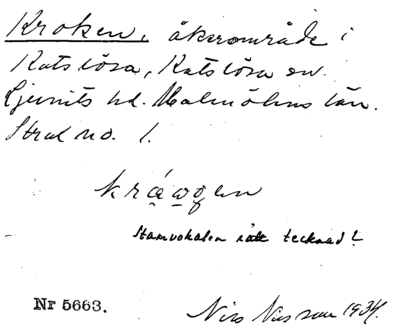 Kroken, åkerområde i
Katslösa, Katslösa sn.
Ljunits hd. Malmöhus län.
Strud no. 1.
kráwgen
Stamvokalen rätt tecknad?
Nr 5663.
Nils Nilsson 1934.